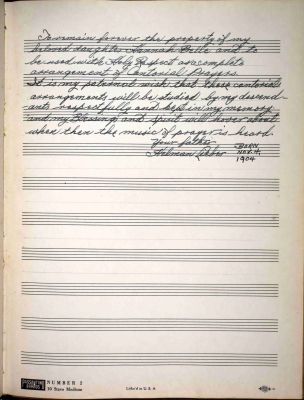 To remain forever the property of my
beloved daughter Hannah Belle and to
be used with Holy Respect as complete
arrangement of Cantorial Prayers.
It is my paternal wish that these cantorial
arrangements will be studied by my descend-
ants respectfully and kept in my memory
and my Blessing and spirit will hover about
when then the music of prayer is heard.
Your father
BORN
NOV. 4,
1904
NUMBER 2
10 Stave Medium
Litho'd in U.S.A.